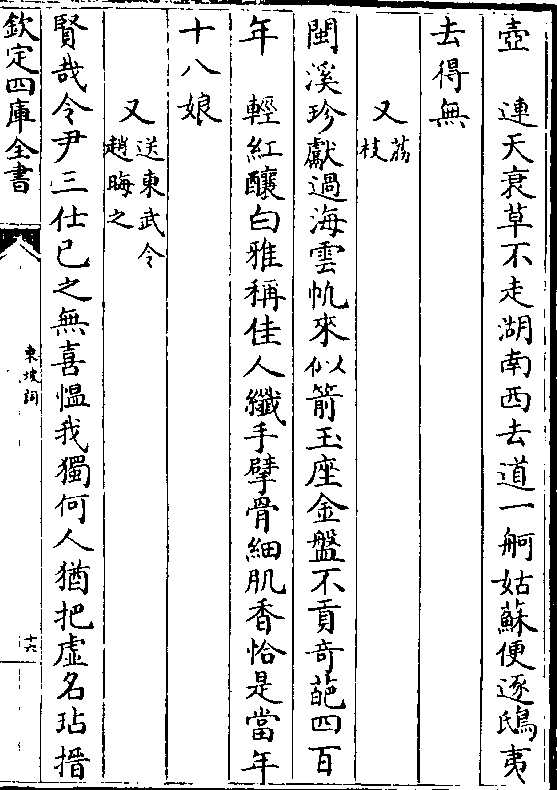 壺　連天衰草不走湖南西去道一舸姑蘇便逐鴟夷
去得無
又荔枝
閩溪珍獻過海雲帆來似箭玉座金盤不貢奇葩四百
年　輕紅釀白雅稱佳人纖手擘骨細肌香恰是當年
十八娘
又送東武令趙晦之
賢哉令尹三仕已之無喜愠我獨何人猶把虛名玷搢
欽定四庫全書
東坡詞
十六